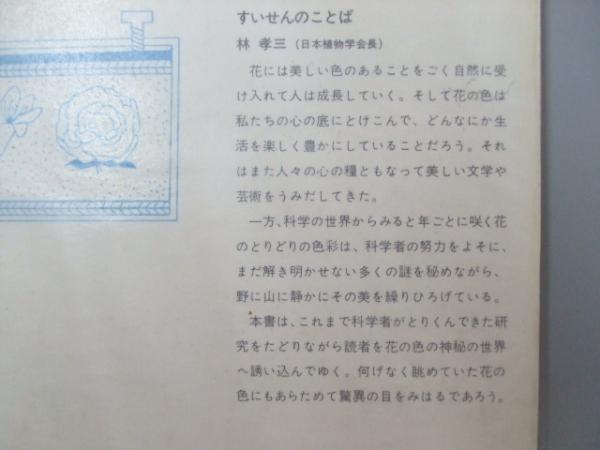 すいせんのことば
林 孝三（日本植物学会長）
花には美しい色のあることをごく自然に受
け入れて人は成長していく。そして花の色は
私たちの心の底にとけこんで、どんなにか生
活を楽しく豊かにしていることだろう。それ
はまた人々の心の糧ともなって美しい文学や
芸術をうみだしてきた。
一方、科学の世界からみると年ごとに咲く花
のとりどりの色彩は、科学者の努力をよそに、
まだ解き明かせない多くの謎を秘めながら、
野に山に静かにその美を繰りひろげている。
本書は、これまで科学者がとりくんできた研
究をたどりながら読者を花の色の神秘の世界
へ誘い込んでゆく。何げなく眺めていた花の
色にもあらためて驚異の目をみはるであろう。